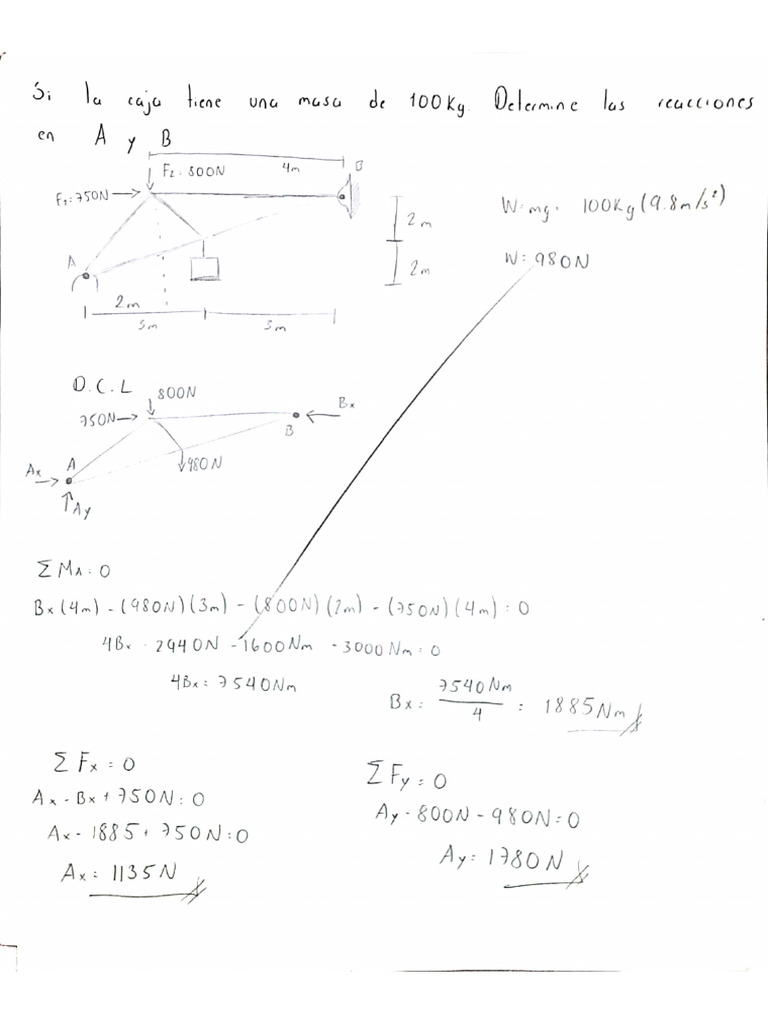 Si la caja tiene una masa de 100Kg. Determine las reacciones
en A y B
F2: 800N
4m
B
F1: 750N
A
2m
5m
3m
2m
2m
W=mg = 100Kg (9.8m/s²)
W= 980N
D.C.L
800N
750N
Bx
B
980N
Ax
A
Ay
ΣMA=0
Bx(4m) - (980N)(3m) - (800N)(2m) - (750N)(4m)=0
4Bx - 2940N - 1600Nm - 3000Nm=0
4Bx = 7540Nm
Bx = 7540Nm / 4 = 1885Nm
ΣFx = 0
Ax - Bx + 750N=0
Ax - 1885 + 750N=0
Ax = 1135N
ΣFy = 0
Ay - 800N - 980N=0
Ay = 1780N